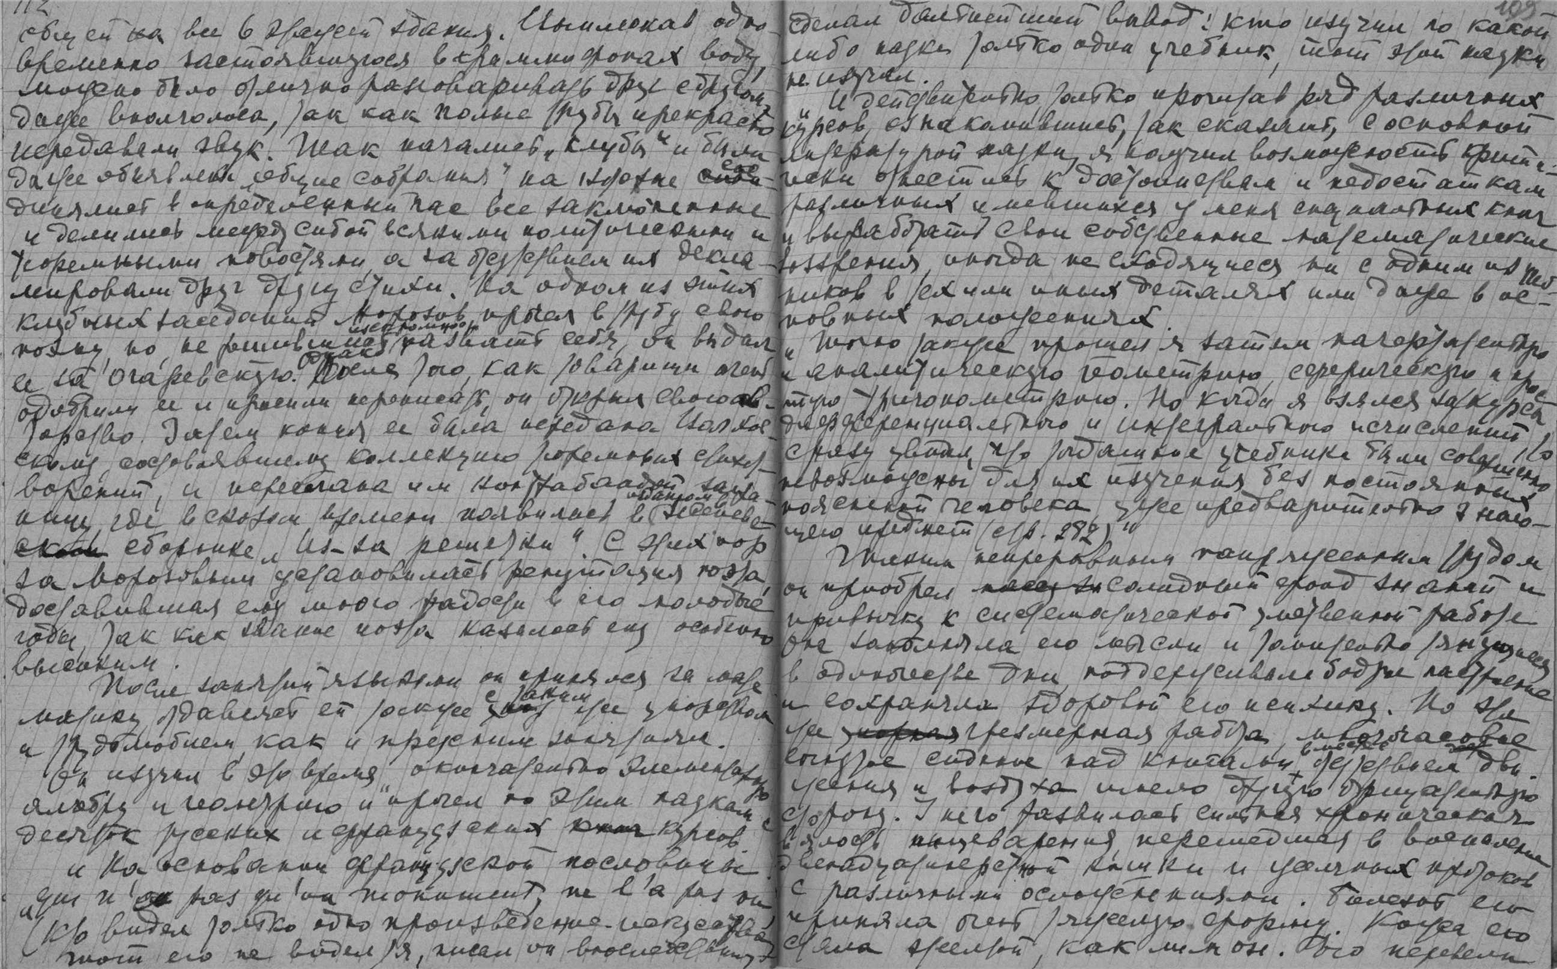 112
общей на все 6 этажей здания. Выплюнав одно-
временно застоявшуюся в трамплинах воду,
можно было отлично разговаривать друг с другом
даже вполголоса, так как полые трубы прекрасно
передавали звук. Так начались „клубы" и были
даже объявлены „общие собрания", на которые
в определенный час все заключенные
и делились между собой всякими политическими и
тюремными новостями, а за отсутствием их декла-
мировали друг другу стихи. На одном из этих
клубных заседаний Морозов прочел в трубу свою
поэму, но, не решившись назвать себя, он выдал
ее за Огаревскую. Однако после того, как товарищи очень
одобрили ее и просили переписать, он открыл свое ав-
торство. Затем копия ее была передана
скому, составлявшему коллекцию тюремных стихот-
ворений, и переслана им контрабандой за гра-
ницу, где в скором времени появилась в изданном в Женеве
сборнике „Из-за решетки". С этих пор
за Морозовым установилась репутация поэта,
доставившая ему много радости в его молодые
годы, так как звание поэта казалось ему особенно
высоким.
После занятий языками он принялся за мате-
матику, отдаваясь ей также с таким же упорством
и трудолюбием, как и прежним занятиям.
Он изучил в это время окончательно элементарную
алгебру и геометрию и „прочел по этим наукам с
десяток русских и французских курсов.
„На основании французской пословицы
„qui n'a vu qu'un monument, ne l'a pas vu"
(кто видел только одно произведение искусства,
тот его не видел) я, писал он впоследствии,
109
сделал дальнейший вывод: кто изучил по какой
либо науке только один учебник, тот этой науки
не изучил.
„И действительно, только прочитав ряд различных
курсов, ознакомившись, так сказать, с основной
литературой науки, я получил возможность крити-
чески отнестись к достоинствам и недостаткам
различных имевшихся у меня специальных книг
и выработать свои собственные математические
воззрения, иногда не сходящиеся ни с одним из учеб-
ников в тех или иных деталях или даже в ос-
новных положениях.
„Точно также прошел я затем начертательную
и аналитическую геометрию, сферическую и прос-
тую тригонометрию. Но когда я взялся за курсы
дифференциального и интегрального исчислений, то
сразу увидел, что тогдашние учебники были совершенно
невозможны для их изучения без постоянных
пояснений человека, уже предварительно знаю-
щего предмет (стр. 282)"
Таким непрерывным напряженным трудом
он приобрел солидный фонд знаний и
привычку к систематической умственной работе.
Она заполняла его мысли и томительно тянущиеся
в одиночестве дни, поддерживала бодрое настроение
и сохранила здоровой его психику. Но эта
же чрезмерная работа, многочасовое
сидение над книгами вместе с отсутствием дви-
жения и воздуха имело другую отрицательную
сторону. У него развилась сильная хроническая
вялость пищеварения, перешедшая в воспаление
двенадцатиперстной кишки и желчных протоков
с различными осложнениями. Болезнь его
приняла очень тяжелую форму. Кожа его
стала желтой, как лимон. Его перевели